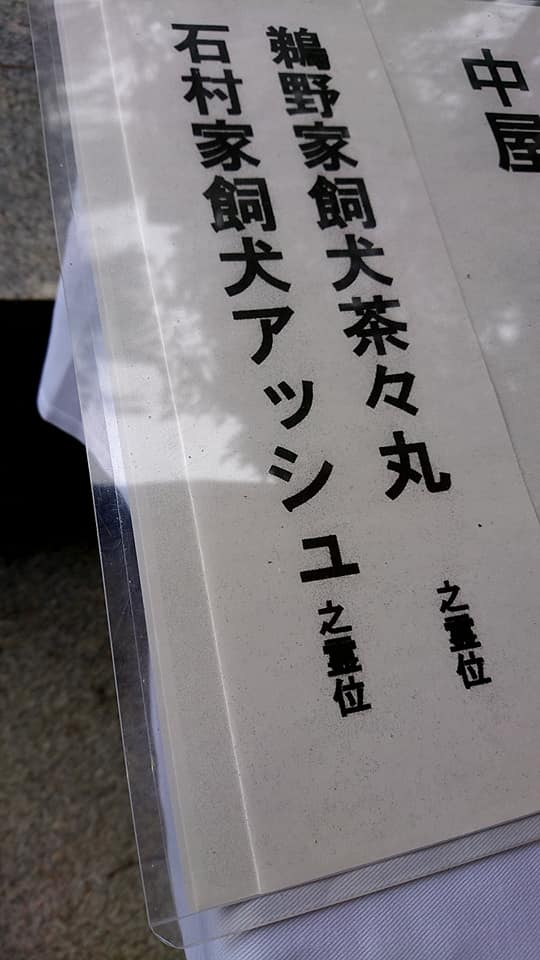 中屋
鵜野家飼犬茶々丸 之霊位
石村家飼犬アッシュ 之霊位